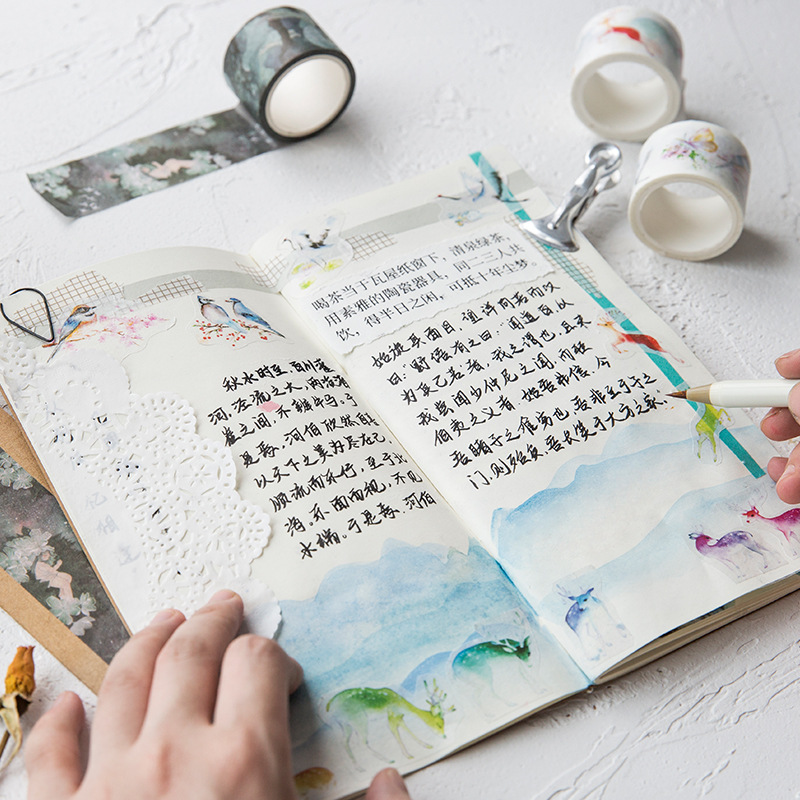 秋水时至,百川灌
河,泾流之大,两涘渚
崖之间,不辨牛马。于
是焉,河伯欣然自
以天下之美为尽在己,
顺流而东行,至于北
海,东面而视,不见
水端。于是焉,河伯
喝茶当于瓦屋纸窗下,清泉绿茶,
用素雅的陶瓷器具,同二三人共
饮,得半日之闲,可抵十年尘梦。
始旋其面目,望洋向若而叹
曰:“野语有之曰,‘闻道百,以
为莫己若者,我之谓也。且夫
我尝闻少仲尼之闻,而轻
伯夷之义者,始吾弗信,今
吾睹子之难穷也,吾非至于子之
门,则殆矣,吾长笑于大方之家